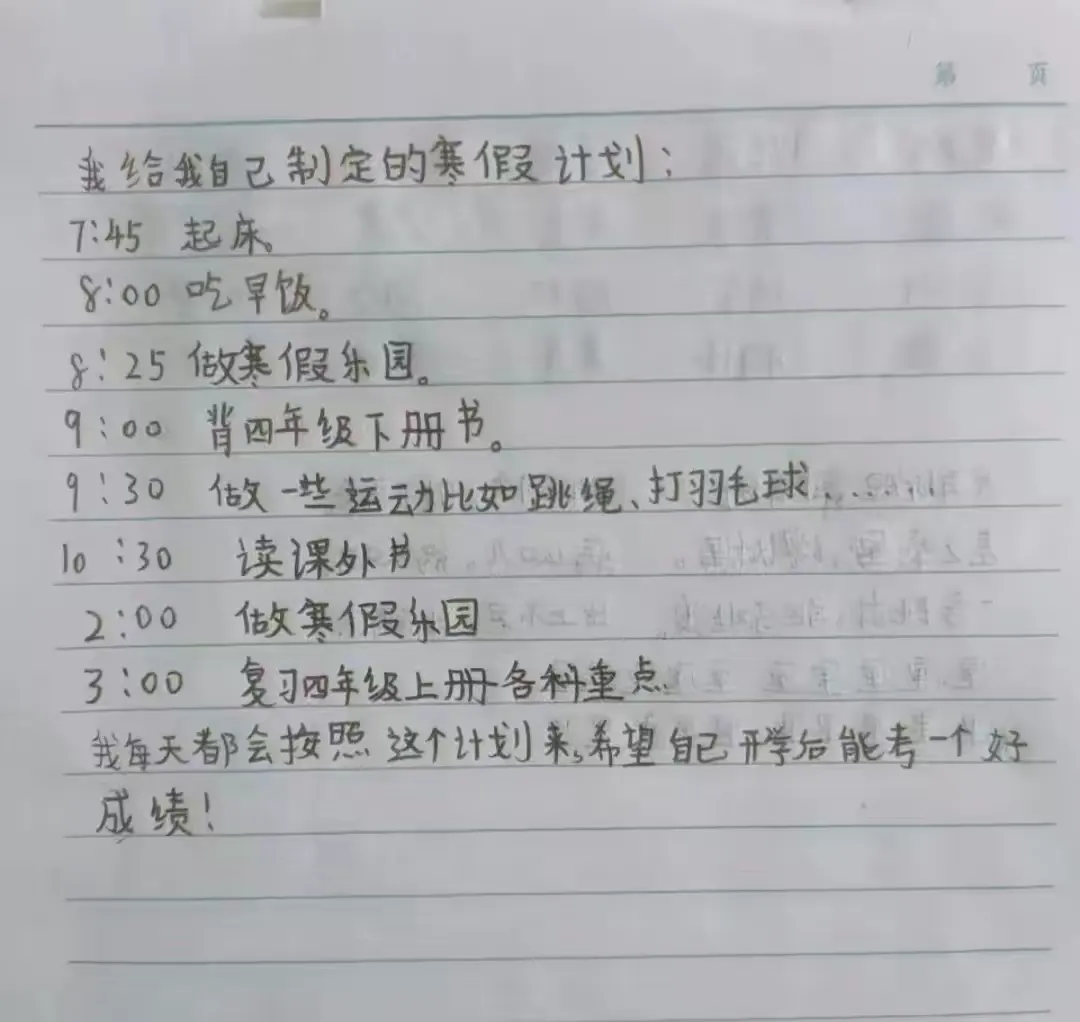 第 页
我给我自己制定的寒假计划:
7:45 起床。
8:00 吃早饭。
8:25 做寒假乐园。
9:00 背四年级下册书。
9:30 做一些运动比如跳绳、打羽毛球,......
10:30 读课外书
2:00 做寒假乐园
3:00 复习四年级上册各科重点.
我每天都会按照这个计划来,希望自己开学后能考一个好
成绩!